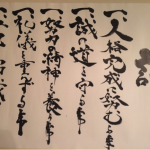 一人格完成に努むる事
一誠の道を守る事
一努力の精神を養う事
一礼儀を重ずる事